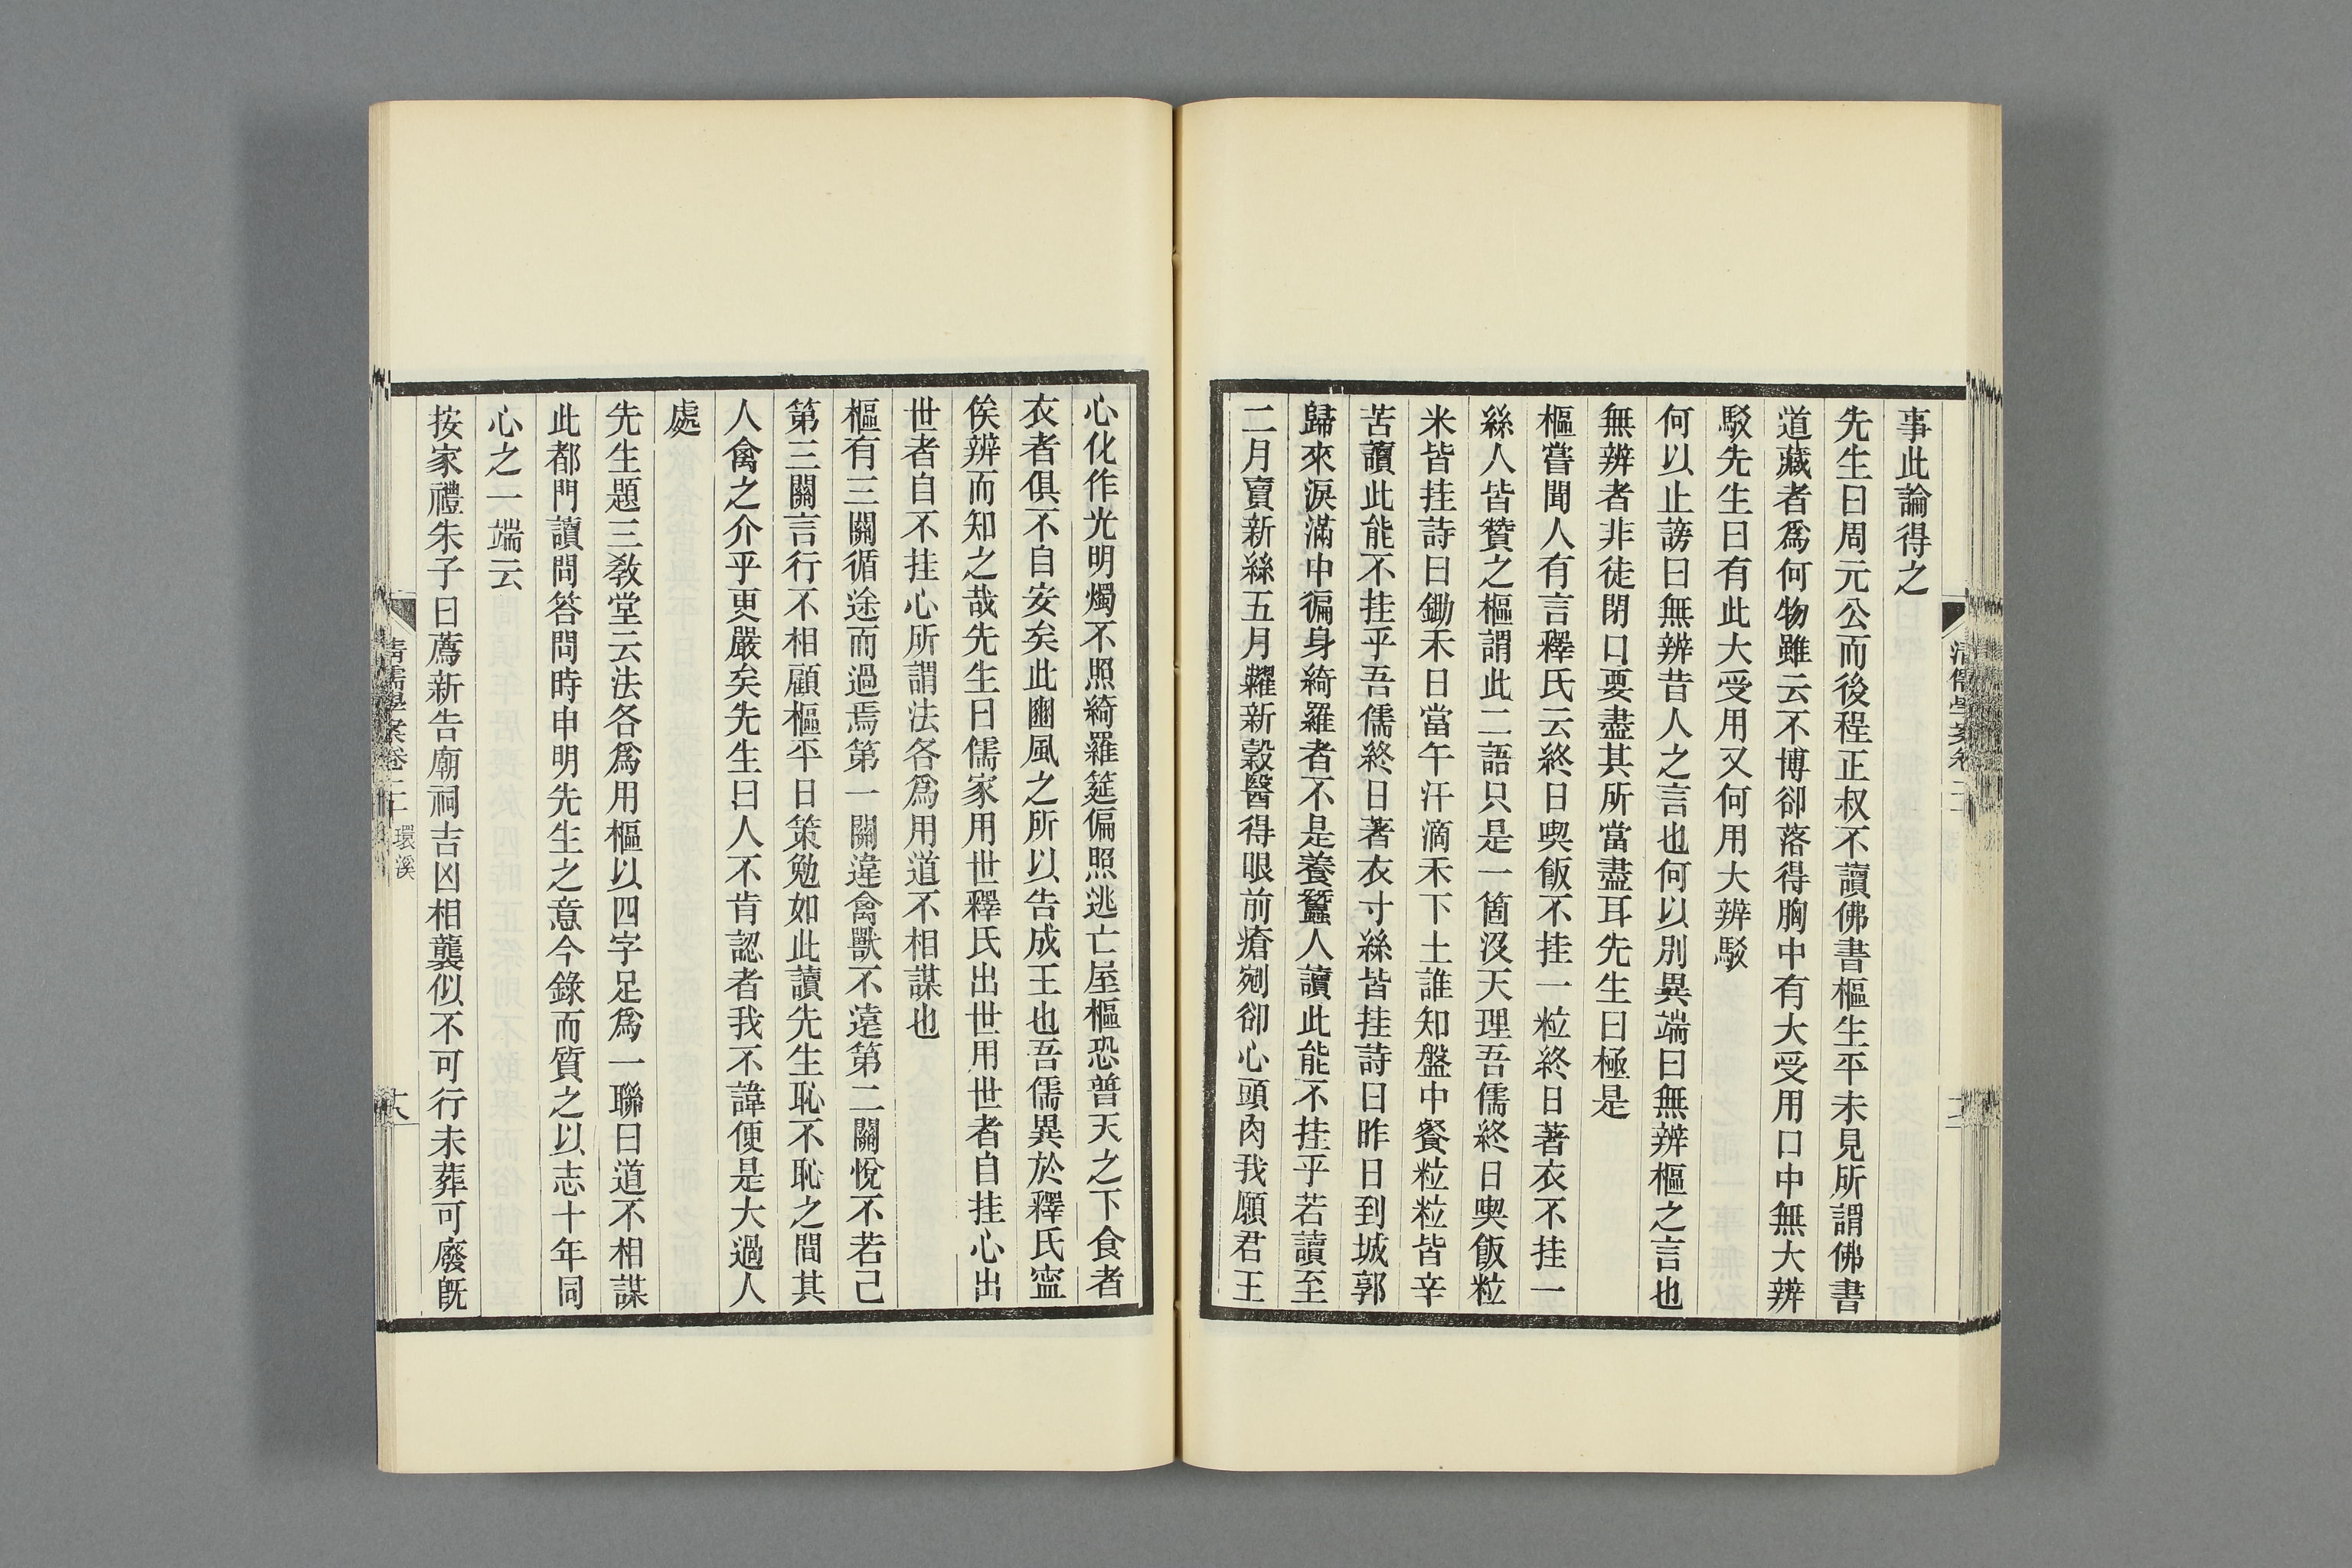 事此論得之
先生曰周元公而後程正叔不讀佛書樞生平未見所謂佛書
道藏者爲何物雖云不博卻落得胸中有大受用口中無大辨
駁先生曰有此大受用又何用大辨駁
何以止謗曰無辨昔人之言也何以別異端曰無辨樞之言也
無辨者非徒閉口要盡其所當盡耳先生曰極是
樞嘗聞人有言釋氏云終日喫飯不挂一粒終日著衣不挂一
絲人皆贊之樞謂此二語只是一箇沒天理吾儒終日喫飯粒
米皆挂詩曰鋤禾日當午汗滴禾下土誰知盤中餐粒粒皆辛
苦讀此能不挂乎吾儒終日著衣寸絲皆挂詩曰昨日到城郭
歸來淚滿巾徧身綺羅者不是養蠶人讀此能不挂乎若讀至
二月賣新絲五月糶新穀醫得眼前瘡剜卻心頭肉我願君王
心化作光明燭不照綺羅筵偏照逃亡屋樞恐普天之下食者
衣者俱不自安矣此豳風之所以告成王也吾儒異於釋氏寍
俟辨而知之哉先生曰儒家用世釋氏出世用世者自挂心出
世者自不挂心所謂法各爲用道不相謀也
樞有三關循途而過焉第一關違禽獸不遠第二關悅不若己
第三關言行不相顧樞平日策勉如此讀先生恥不恥之間其
人禽之介乎更嚴矣先生曰人不肯認者我不諱便是大過人
處
先生題三敎堂云法各爲用樞以四字足爲一聯曰道不相謀
此都門讀問答問時申明先生之意今錄而質之以志十年同
心之一端云
按家禮朱子曰薦新告廟祠吉凶相襲似不可行未葬可廢旣
清儒學案卷二十 環溪
十八